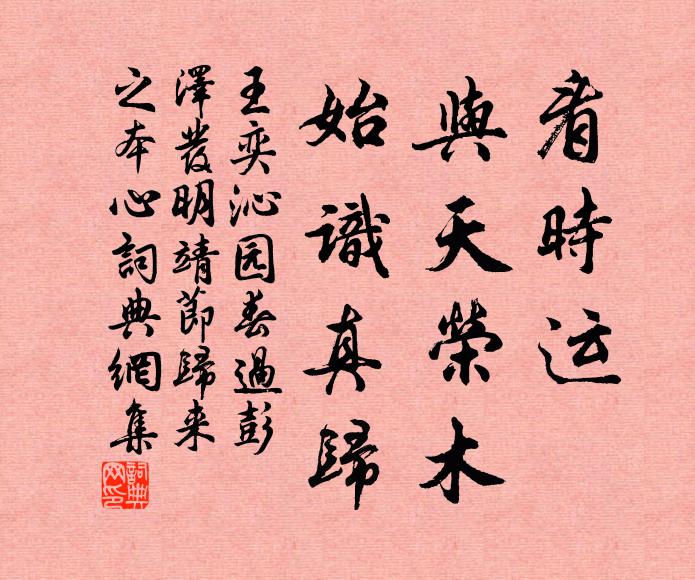 看時运
與天榮木
始識真歸
王奕沁园春過彭
澤發明靖節歸来
之本心詞典網集
詞典网印